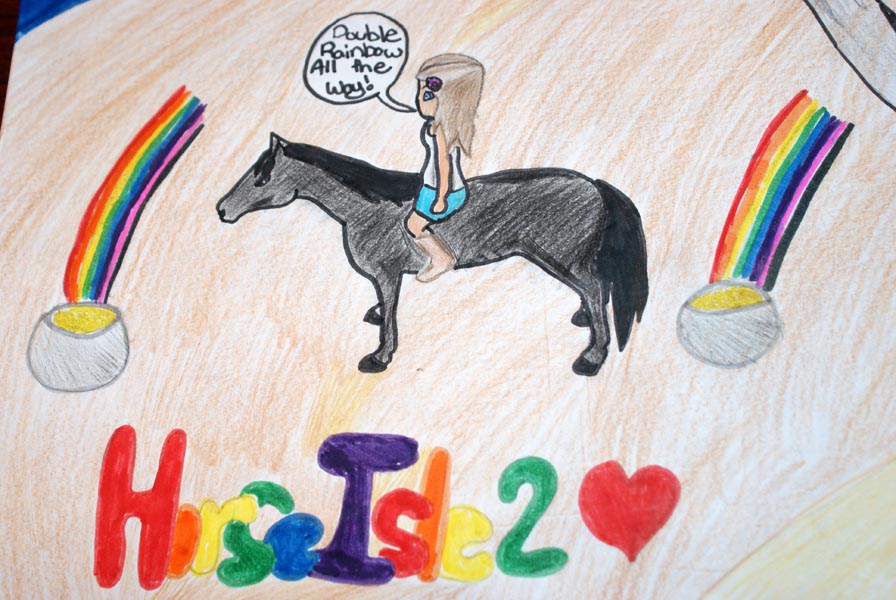 Double
Rainbow
All the
Way!
Horse Isle 2